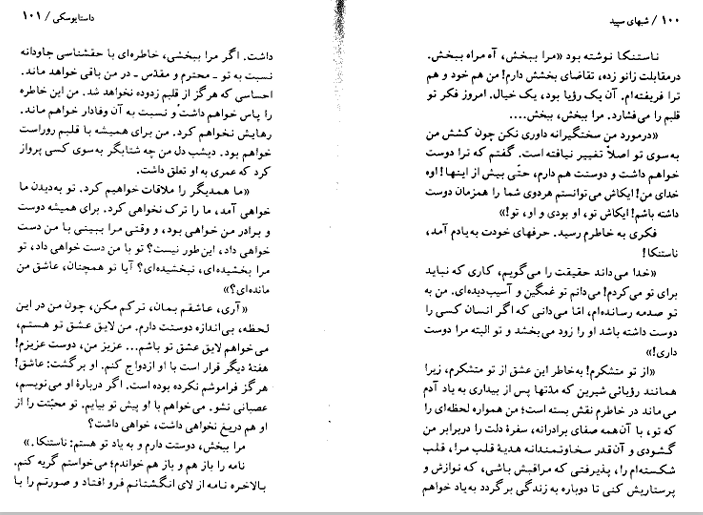 ۱۰۰ / شبهای سپید
ناستنکا نوشته بود «مرا ببخش، آه مراه ببخش.
درمقابلت زانو زده، تقاضای بخشش دارم! من هم خود و هم
ترا فریفته‌ام. آن یک رؤیا بود، یک خیال. امروز فکر تو
قلبم را می‌فشارد. مرا ببخش، ببخش....
«درمورد من سختگیرانه داوری نکن چون کشش من
به‌سوی تو اصلاً تغییر نیافته است. گفتم که ترا دوست
خواهم داشت و دوستت هم دارم، حتّی بیش از اینها! اوه
خدای من! ایکاش می‌توانستم هردوی شما را همزمان دوست
داشته باشم! ایکاش تو، او بودی و او، تو!»
فکری به خاطرم رسید. حرفهای خودت به‌یادم آمد،
ناستنکا!
«خدا می‌داند حقیقت را می‌گویم، کاری که نباید
برای تو می‌کردم! می‌دانم تو غمگین و آسیب‌دیده‌ای. من به
تو صدمه رسانده‌ام، امّا می‌دانی که اگر انسان کسی را
دوست داشته باشد او را زود می‌بخشد و تو البته مرا دوست
داری!»
«از تو متشکرم! به‌خاطر این عشق از تو متشکرم، زیرا
همانند رؤیائی شیرین که مدتها پس از بیداری به یاد آدم
می‌ماند در خاطرم نقش بسته است؛ من همواره لحظه‌ای را
که تو، با آن‌همه صفای برادرانه، سفرهٔ دلت را دربرابر من
گشودی و آن‌قدر سخاوتمندانه هدیهٔ قلب مرا، قلب
شکسته‌ام را، پذیرفتی که مراقبش باشی، که نوازش و
پرستاریش کنی تا دوباره به زندگی برگردد به‌یاد خواهم
داستایوسکی / ۱۰۱
داشت. اگر مرا ببخشی، خاطره‌ای با حقشناسی جاودانه
نسبت به تو ـ محترم و مقدّس ـ در من باقی خواهد ماند.
احساسی که هرگز از قلبم زدوده نخواهد شد. من این خاطره
را پاس خواهم داشت و نسبت به آن وفادار خواهم ماند.
رهایش نخواهم کرد. من برای همیشه با قلبم روراست
خواهم بود. دیشب دل من چه شتابگر به‌سوی کسی پرواز
کرد که عمری به او تعلق داشت.
«ما همدیگر را ملاقات خواهیم کرد. تو به‌دیدن ما
خواهی آمد، ما را ترک نخواهی کرد. برای همیشه دوست
و برادر من خواهی بود، و وقتی مرا ببینی با من دست
خواهی داد، این‌طور نیست؟ تو با من دست خواهی داد، تو
مرا بخشیده‌ای، نبخشیده‌ای؟ آیا تو همچنان، عاشق من
مانده‌ای؟»
«آری، عاشقم بمان، ترکم مکن، چون من در این
لحظه، بی‌اندازه دوستت دارم. من لایق عشق تو هستم،
می‌خواهم لایق عشق تو باشم... عزیز من، دوست عزیزم!
هفتهٔ دیگر قرار است با او ازدواج کنم. او برگشت: عاشق!
هرگز فراموشم نکرده بوده است. اگر دربارهٔ او می‌نویسم،
عصبانی نشو. می‌خواهم با او پیش تو بیایم. تو محبّتت را از
او هم دریغ نخواهی داشت، خواهی داشت؟
مرا ببخش، دوستت دارم و به یاد تو هستم: ناستنکا.»
نامه را باز هم و باز هم خواندم؛ می‌خواستم گریه کنم.
بالاخره نامه از لای انگشتانم فرو افتاد و صورتم را با